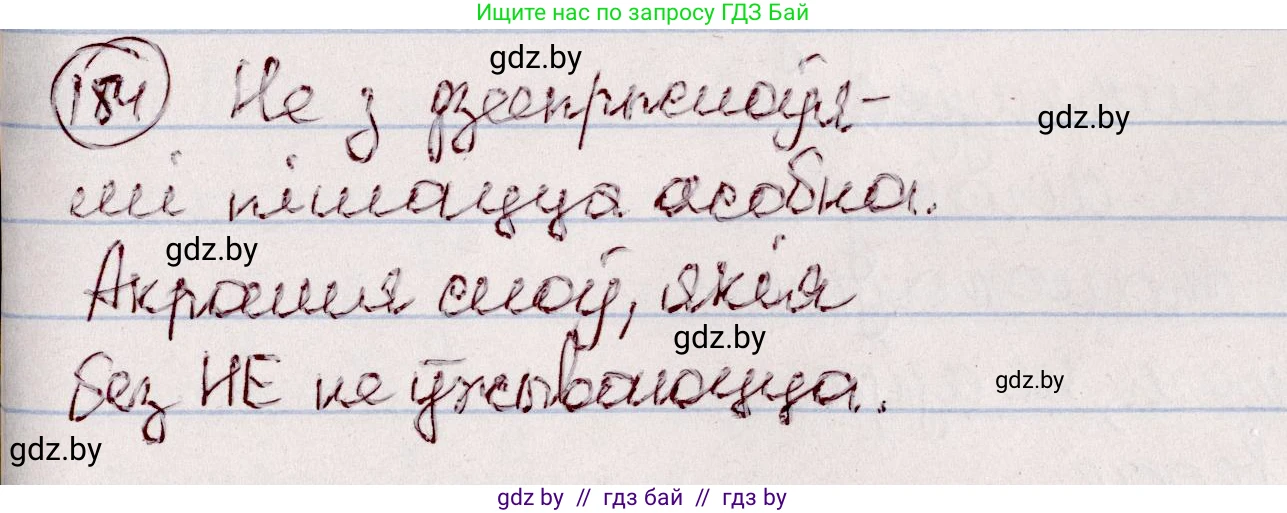 Ищите нас по запросу ГДЗ Бай
gdz.by
184 Не з дзеепрыслоўя-
gdz.by
мі пішацца асобна.
gdz.by
Акрамя слоў, якія
gdz.by
без НЕ не ўжываюцца.
gdz.by
gdz.by
gdz.by // гдз бай // гдз by